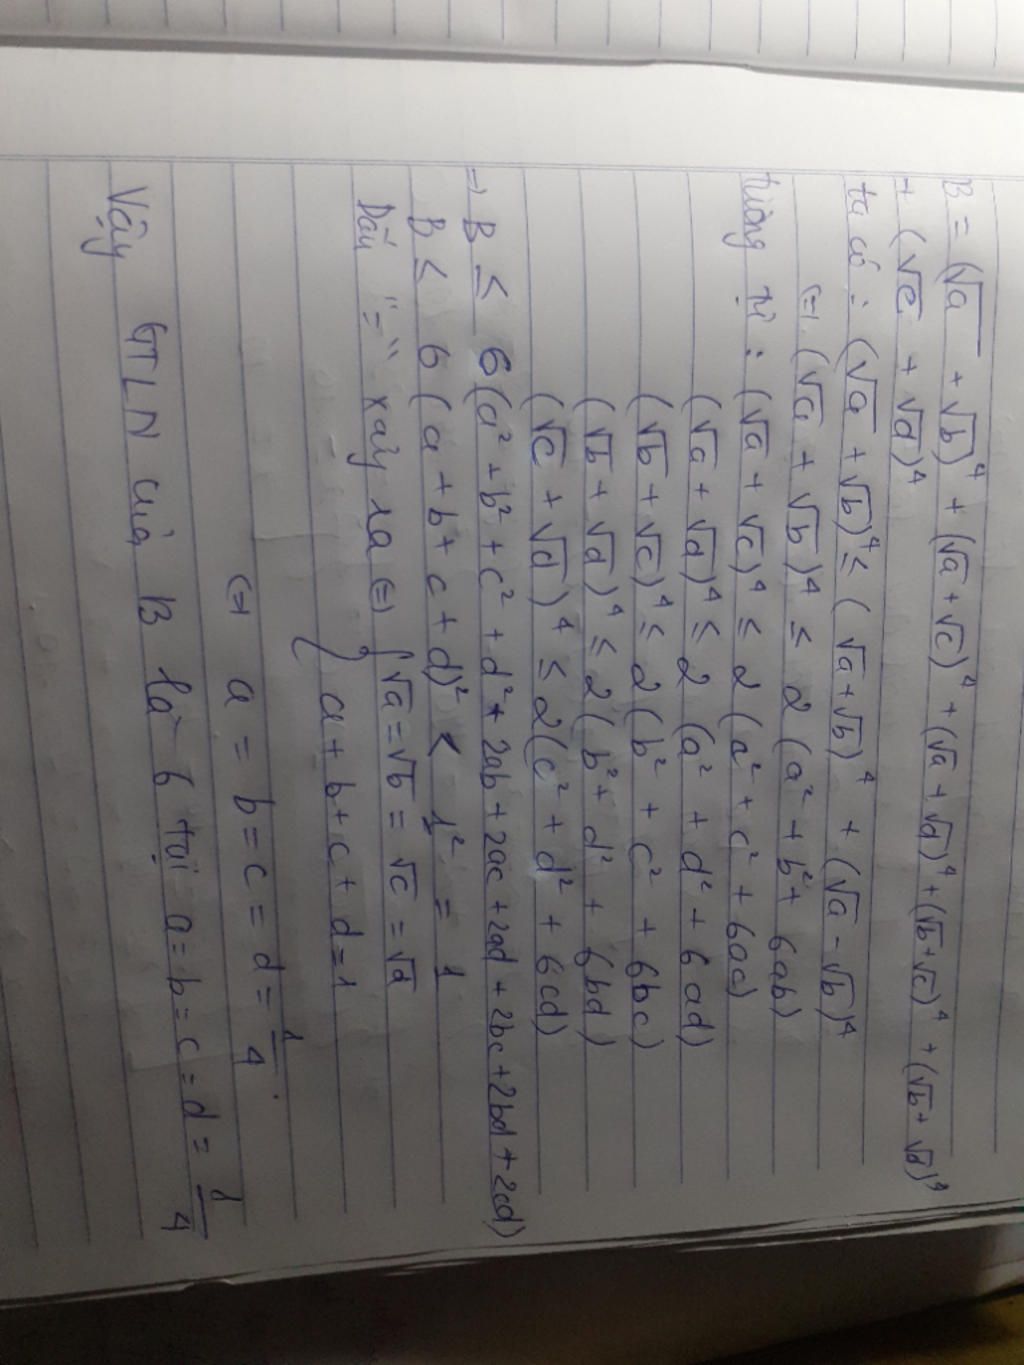 B = (√a + √b)⁴ + (√a + √c)⁴ + (√a + √d)⁴ + (√b + √c)⁴ + (√b + √d)⁴
+ (√c + √d)⁴
ta có : (√a + √b)⁴ ≤ (√a + √b)⁴ + (√a - √b)⁴
(=) (√a + √b)⁴ ≤ 2 (a² + b² + 6ab)
tương tự : (√a + √c)⁴ ≤ 2 (a² + c² + 6ac)
(√a + √d)⁴ ≤ 2 (a² + d² + 6ad)
(√b + √c)⁴ ≤ 2 (b² + c² + 6bc)
(√b + √d)⁴ ≤ 2 (b² + d² + 6bd)
(√c + √d)⁴ ≤ 2 (c² + d² + 6cd)
=) B ≤ 6 (a² + b² + c² + d² + 2ab + 2ac + 2ad + 2bc + 2bd + 2cd)
B ≤ 6 (a + b + c + d)² < 1² = 1
Dấu "=" xảy ra (=) { √a = √b = √c = √d
{ a + b + c + d = 1
(=) a = b = c = d = 1/4
Vậy GTLN của B là 6 tại a = b = c = d = 1/4